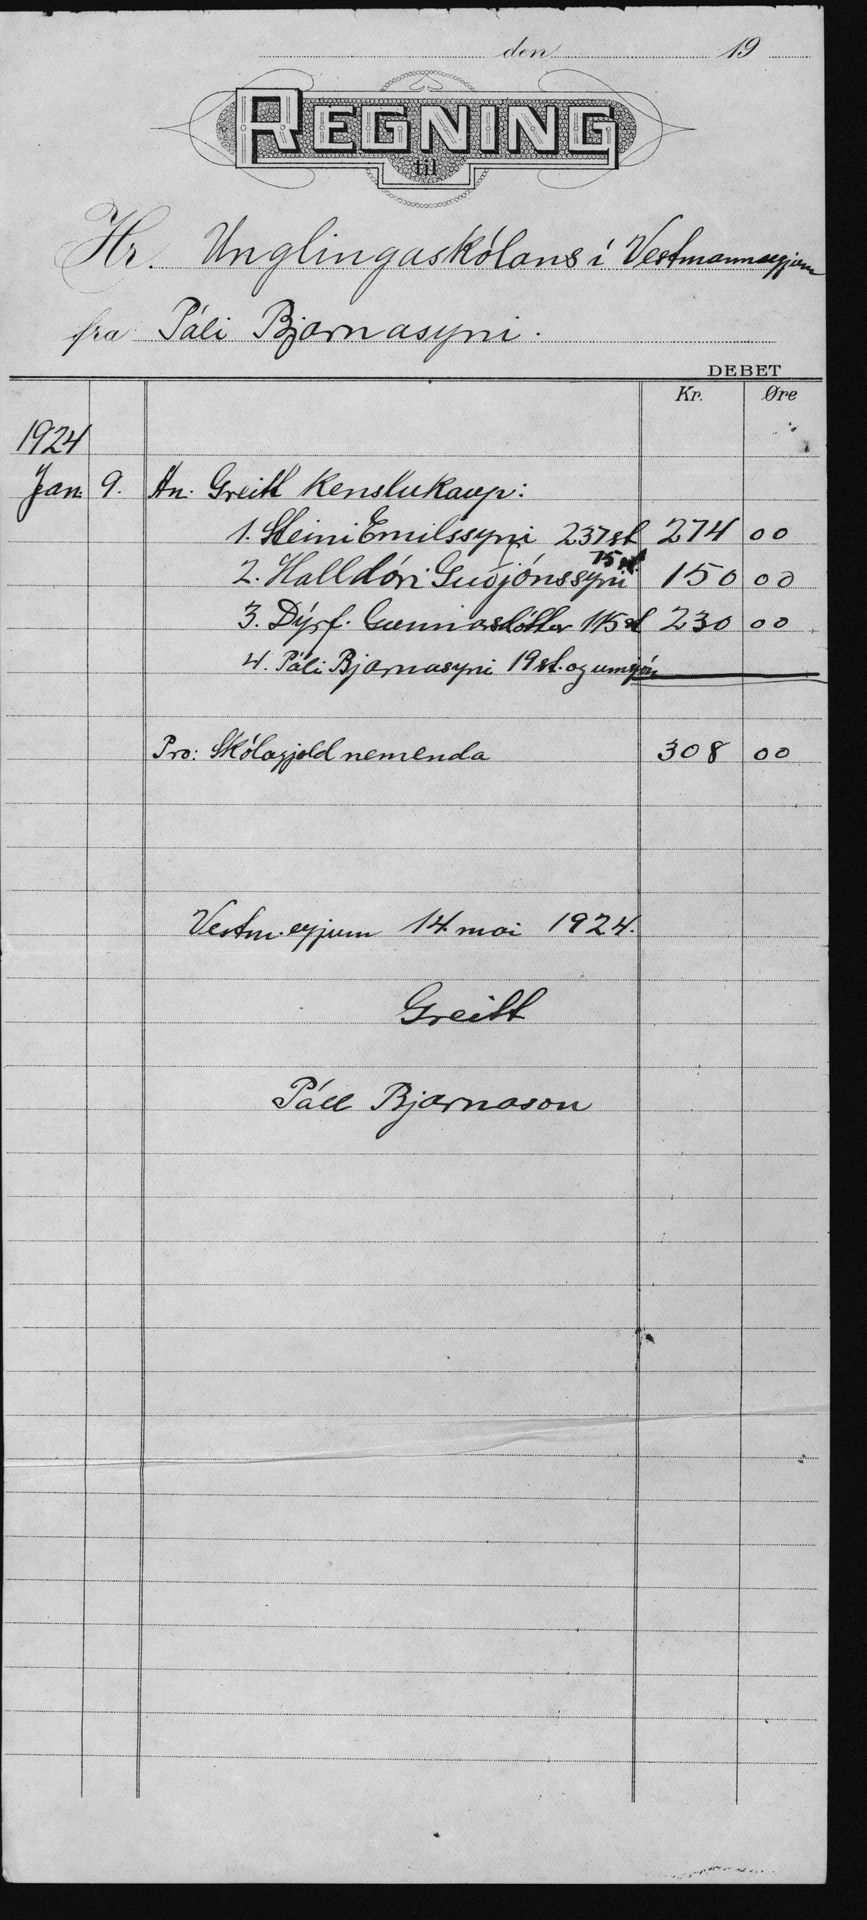 den 19
REGNING
til
Hr. Unglingaskólans í Vestmannaeyjum
fra Páli Bjarnasyni.
DEBET
Kr. Øre
1924
Jan. 9. An. Greitt Kenslukaup:
1. Steini Emilssyni 237 st 274 00
75 st
2. Halldóri Guðjónssyni 150 00
3. Dýrf. Gunnarsdóttur 115 st 230 00
4. Páli Bjarnasyni 19 st. og umsjón
Pro: Skólagjold nemenda 308 00
Vestm.eyjum 14 mai 1924.
Greitt
Páll Bjarnason